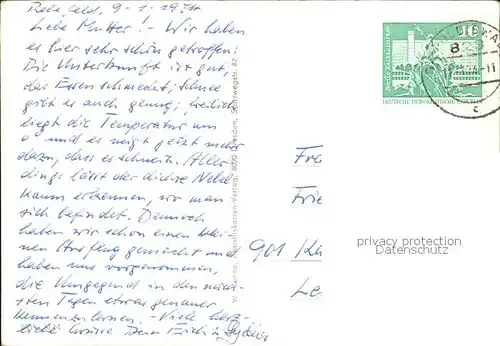 Rehefeld, 9-1-1974
Liebe Mutter! - Wir haben
es hier sehr schön getroffen:
Die Unterkunft ist gut,
das Essen schmeckt, Schnee
gibt es auch genug; freilich
liegt die Temperatur um
0° und es neigt jetzt mehr
dazu, dass es schneit. Aller-
dings lässt der dichte Nebel
kaum erkennen, wo man
sich befindet. Dennoch
haben wir schon einen klei-
nen Ausflug gemacht und
haben uns vorgenommen,
die Umgegend in den näch-
sten Tagen etwas genauer
kennenzulernen. - Viele herz-
liche Grüsse Dein Erich u.
Dresden, Spitzwegstr. 82
DEUTSCHE DEMOKRATISCHE REPUBLIK
Fr
Frie
901 Ka
Le
privacy protection
Datenschutz